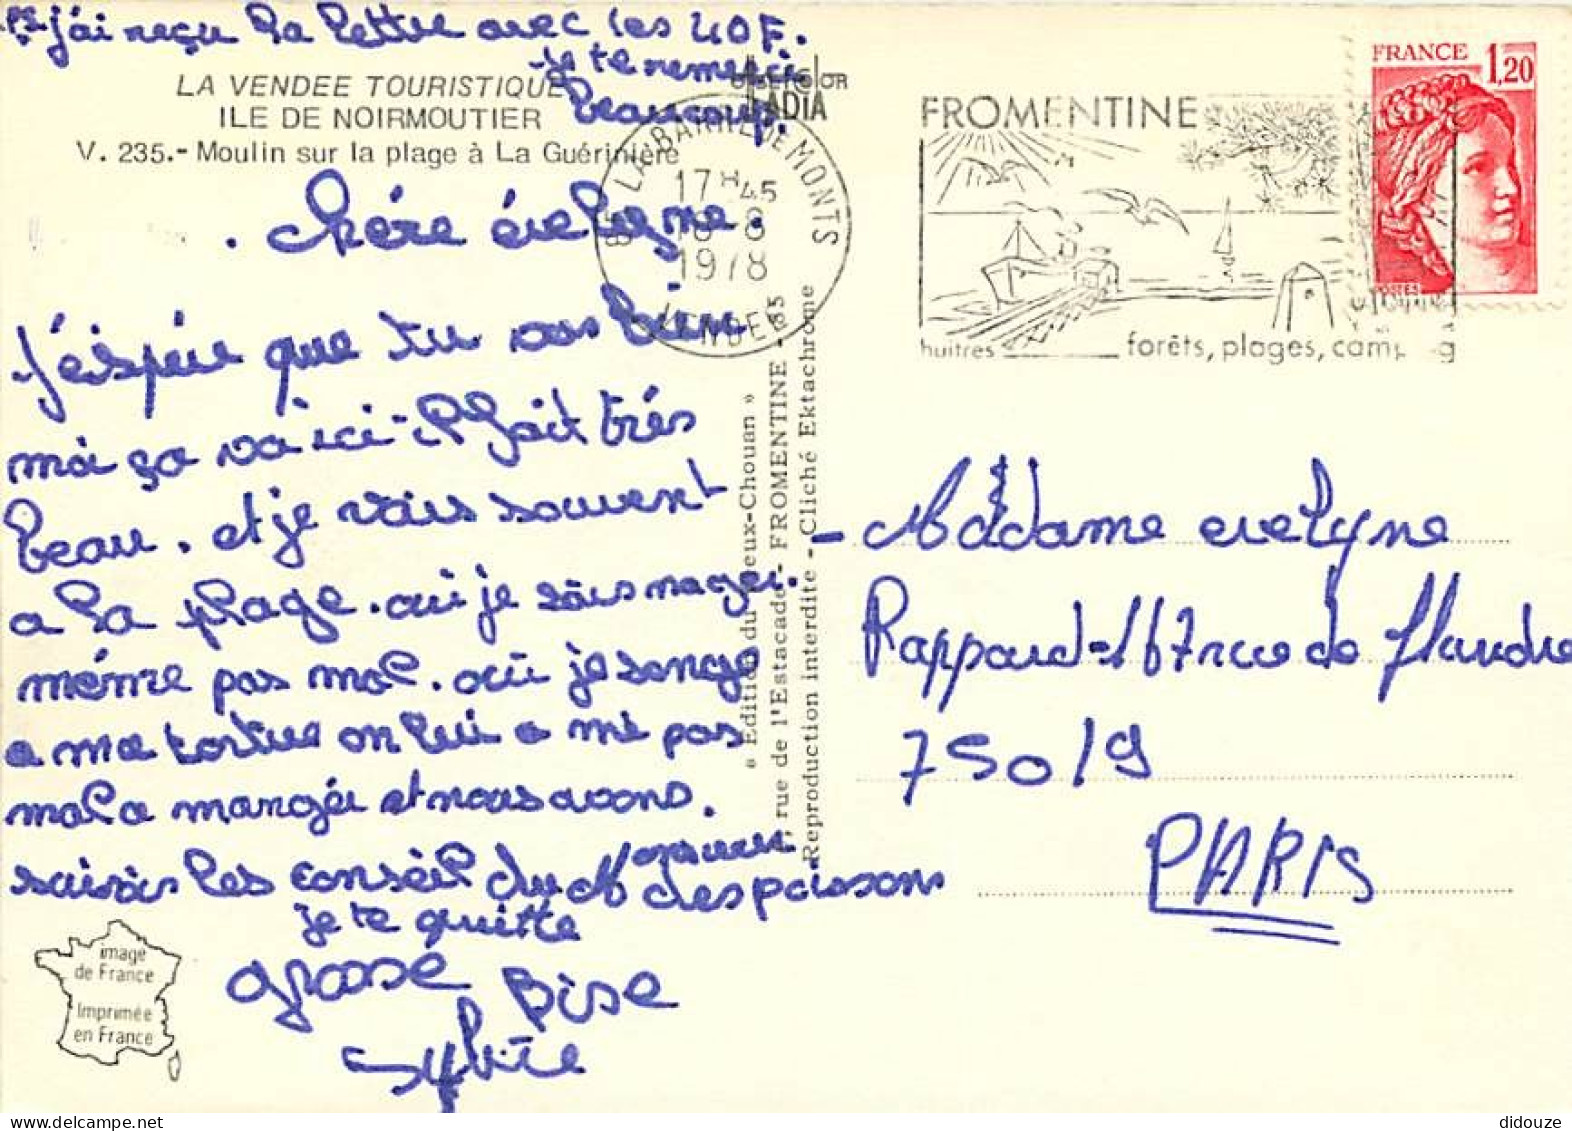 PS j'ai reçu la lettre avec les 40F.
je te remercie
beaucoup.
LA VENDEE TOURISTIQUE
ILE DE NOIRMOUTIER
V. 235.- Moulin sur la plage à La Guérinière
LADIA
LA BARRE DE MONTS
17 H 45
8
1978
VENDEE
FROMENTINE
huitres
forêts, plages, camping
FRANCE 1,20
POSTES
chére évelyne.
J'éspér que tu vas bien
moi ça va ici il fait trés
beau. et je vais souvent
a la plage. oui je sais nager.
même pas mal. oui je songe
a ma tortue on lui a mi pas
mal a manger et nous avons.
suivis les conseil du Mr
des poissons
je te quitte
grosse Bise
Sylvie
« Edition du Vieux-Chouan »
rue de l'Estacade - FROMENTINE - 85
Reproduction interdite - Cliché Ektachrome
- Madame evelyne
Rappard - 167 rue de flandre
75019
PARIS
image
de France
Imprimée
en France
didouze